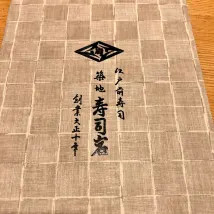 江戸前寿司
築地 寿司岩
創業大正十年